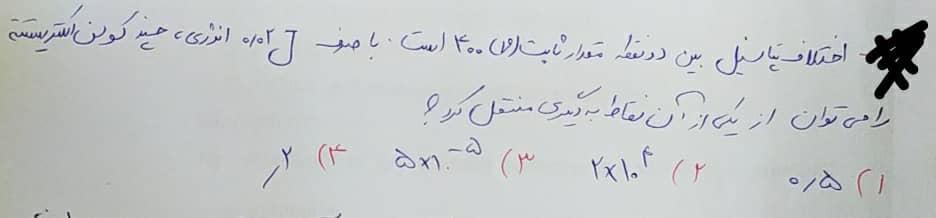 اختلاف پتانسیل بین دو نقطه مقدار ثابت (V) ۴۰۰ است. با صرف ۰٫۰۲ J انرژی، چند کولن الکتریسیته
را می توان از یکی از آن نقاط به دیگری منتقل کرد؟
۱) ۰٫۵ ۲) ۲×۱۰^۴ ۳) ۵×۱۰^-۵ ۴) ۲